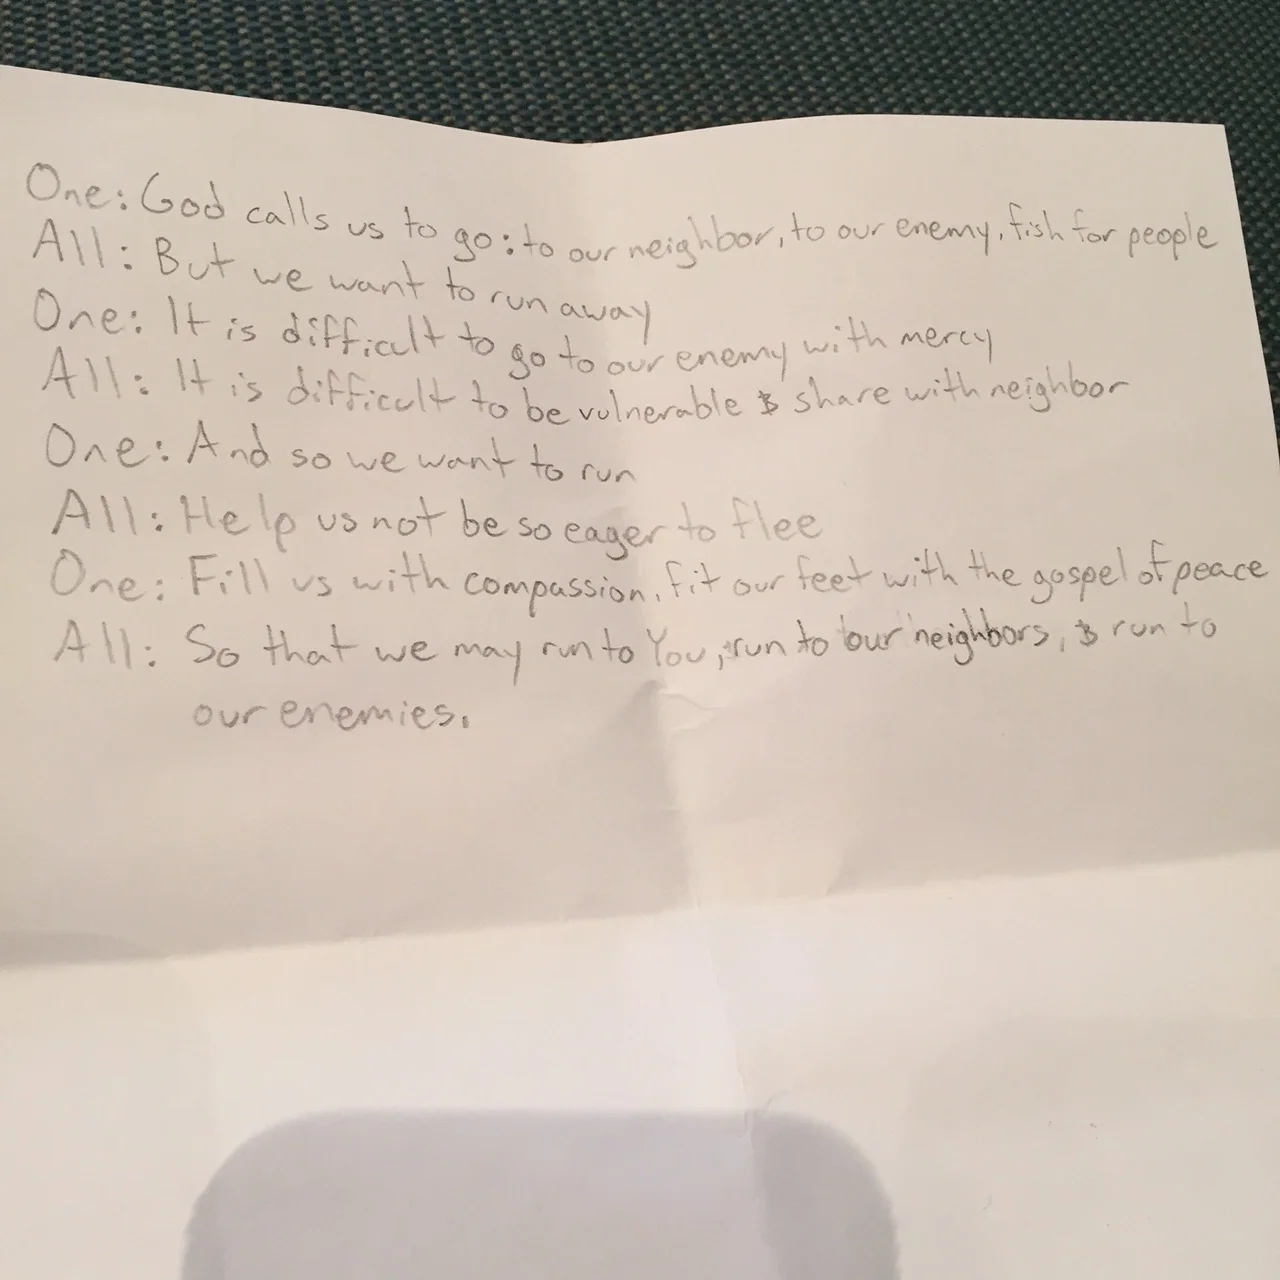 One: God calls us to go: to our neighbor, to our enemy, fish for people
All: But we want to run away
One: It is difficult to go to our enemy with mercy
All: It is difficult to be vulnerable & share with neighbor
One: And so we want to run
All: Help us not be so eager to flee
One: Fill us with compassion, fit our feet with the gospel of peace
All: So that we may run to You, run to our neighbors, & run to
our enemies.